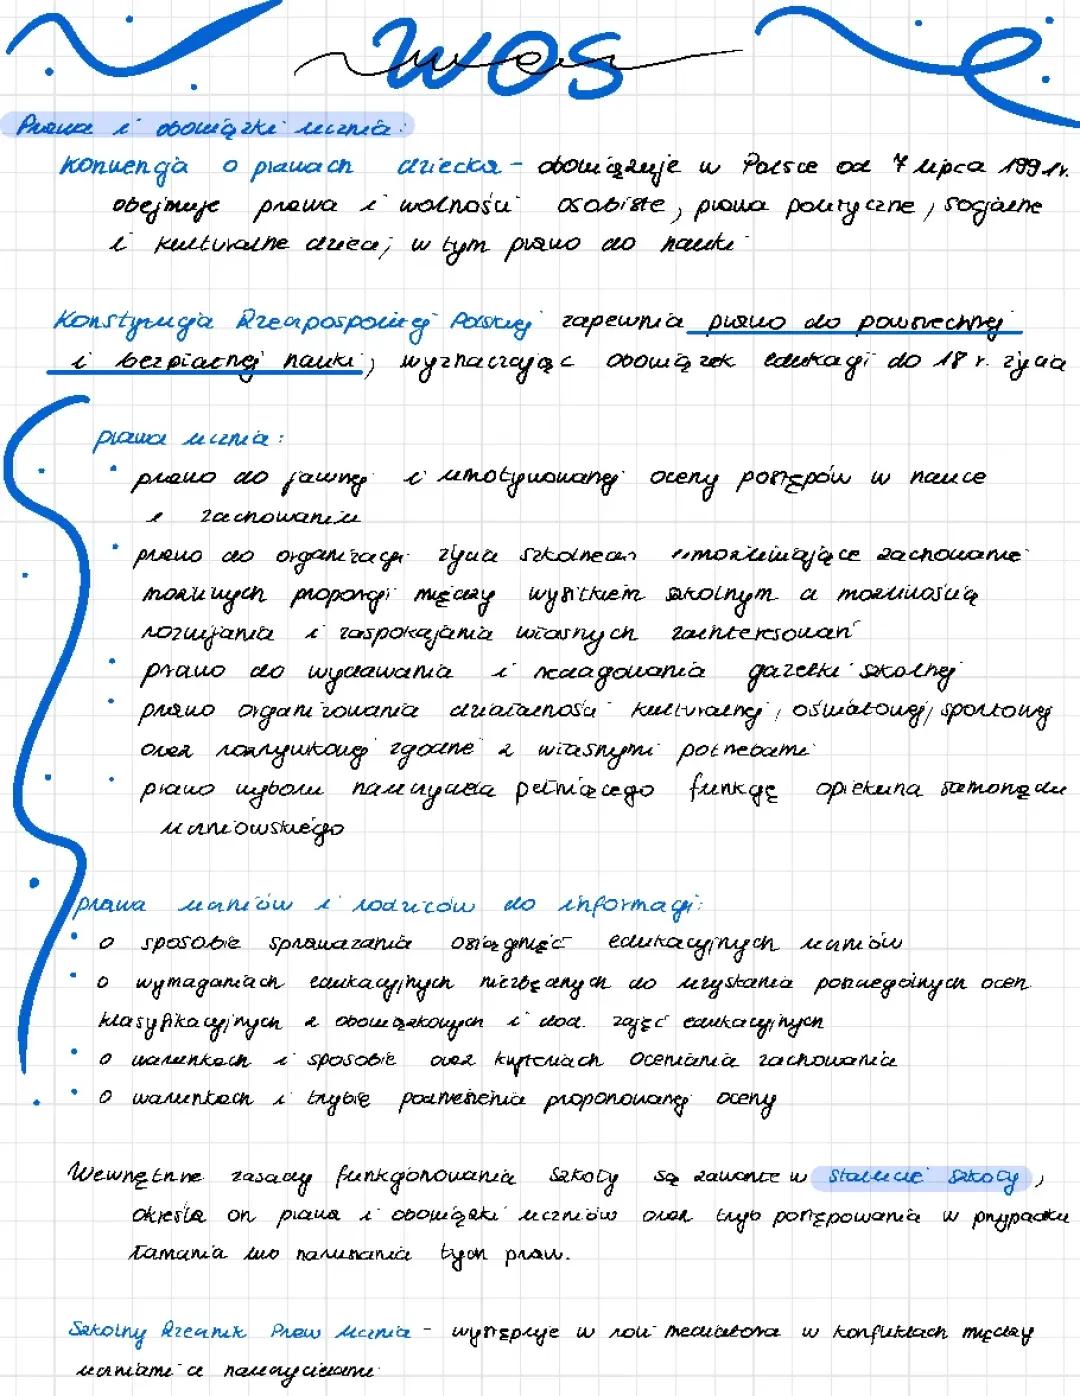 WOS
Prawa i obowiązki ucznia:
Konwencja o prawach dziecka - obowiązuje w Polsce od 7 lipca 1991r.
obejmuje prawa i wolności osobiste, prawa polityczne, socjalne
i kulturalne dzieci, w tym prawo do nauki
Konstytucja Rzeczpospolitej Polskiej zapewnia prawo do powszechnej
i bezpłatnej nauki, wyznaczając obowiązek edukacji do 18 r. życia
prawa ucznia:
• prawo do jawnej i umotywowanej oceny postępów w nauce
i zachowaniu
• prawo do organizacji życia szkolnego umożliwiające zachowanie
możliwych proporcji między wysiłkiem szkolnym a możliwością
rozwijania i zaspokajania własnych zainteresowań
• prawo do wydawania i redagowania gazetki szkolnej
• prawo organizowania działalności kulturalnej, oświatowej, sportowej
oraz rozrywkowej zgodne z własnymi potrzebami
• prawo wyboru nauczyciela pełniącego funkcję opiekuna samorządu
uczniowskiego
prawa uczniów i rodziców do informacji:
• o sposobie sprawdzania osiągnięć edukacyjnych uczniów
• o wymaganiach edukacyjnych niezbędnych do uzyskania poszczególnych ocen
klasyfikacyjnych z obowiązkowych i dod. zajęć edukacyjnych
• o warunkach i sposobie oraz kryteriach oceniania zachowania
• o warunkach i trybie podwyższenia proponowanej oceny
Wewnętrzne zasady funkcjonowania szkoły są zawarte w statucie szkoły,
określa on prawa i obowiązki uczniów oraz tryb postępowania w przypadku
łamania lub naruszania tych praw.
Szkolny Rzecznik Praw Ucznia - występuje w roli mediatora w konfliktach między
uczniami a nauczycielami